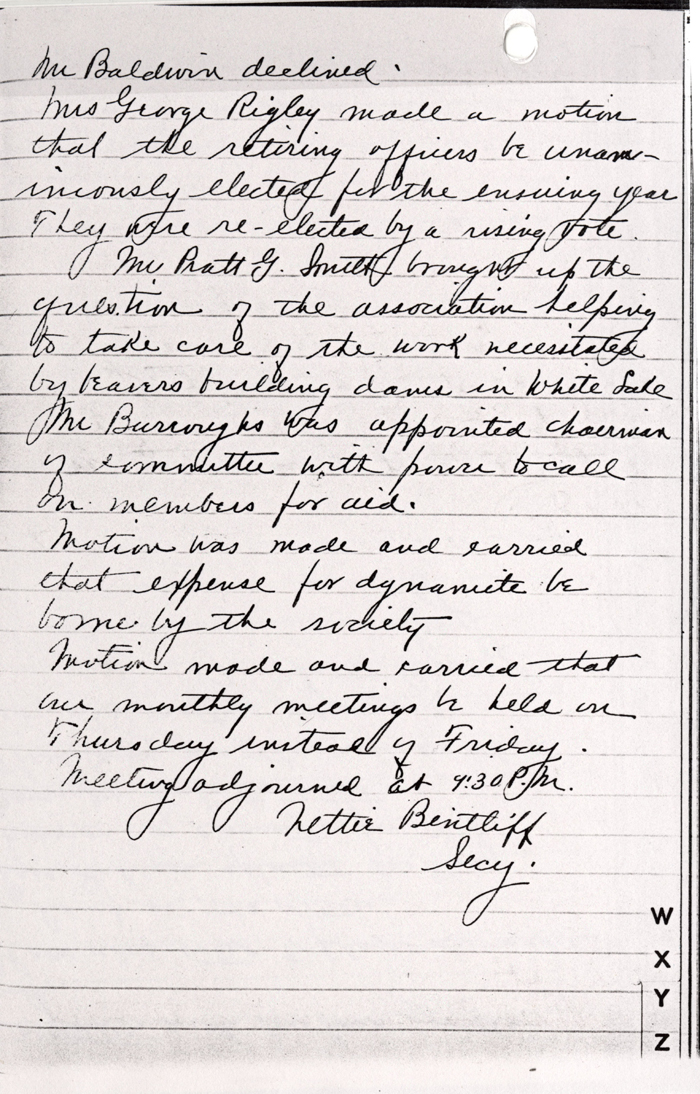 Mr Baldwin declined.
Mrs George Rigley made a motion
that the retiring officers be unam-
imously elected for the ensuing year
They were re-elected by a rising vote.
Mr Pratt G. Smith brought up the
question of the association helping
to take care of the work necessitated
by beavers building dams in White Lake
Mr Burroughs was appointed chairman
of committee with power to call
on members for aid.
Motion was made and carried
that expense for dynamite be
borne by the society
Motion made and carried that
our monthly meetings be held on
Thursday instead of Friday.
Meeting adjourned at 9:30 P.M.
Nettie Bentliff
Secy.
W
X
Y
Z